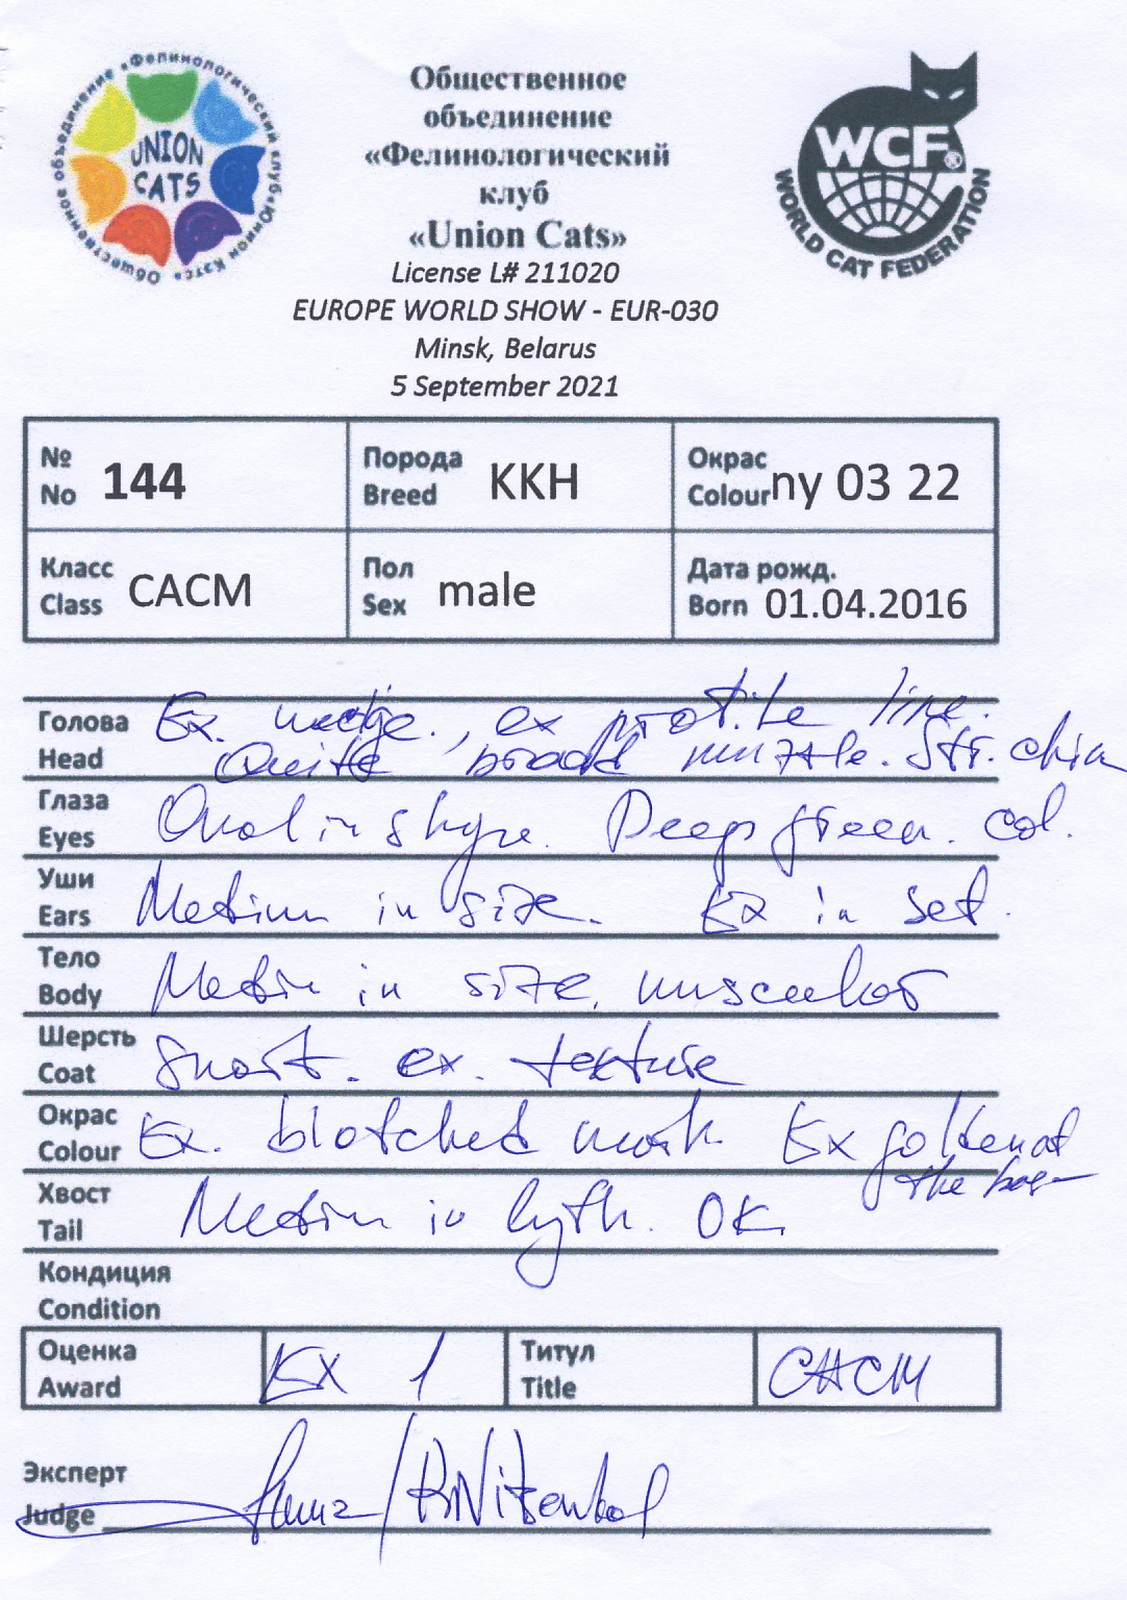 Общественное объединение «Фелинологический клуб «Юнион Кэтс»
UNION
CATS
Общественное
объединение
«Фелинологический
клуб
«Union Cats»
WCF®
WORLD CAT FEDERATION
License L# 211020
EUROPE WORLD SHOW - EUR-030
Minsk, Belarus
5 September 2021
№ No 144
Порода Breed KKH
Окрас Colour ny 03 22
Класс Class CACM
Пол Sex male
Дата рожд. Born 01.04.2016
Голова Ex. wedge., ex profile line.
Head Quite broad muzzle. Str. chin
Глаза
Eyes Oval in shape. Deep green. col.
Уши
Ears Medium in size. Ex in set.
Тело
Body Medium in size, muscular
Шерсть
Coat Short. ex. texture
Окрас
Colour Ex. blotched mark. Ex golden at
the
Хвост
Tail Medium in lgth. OK.
Кондиция
Condition
Оценка Award EX 1
Титул Title CACM
Эксперт
Judge